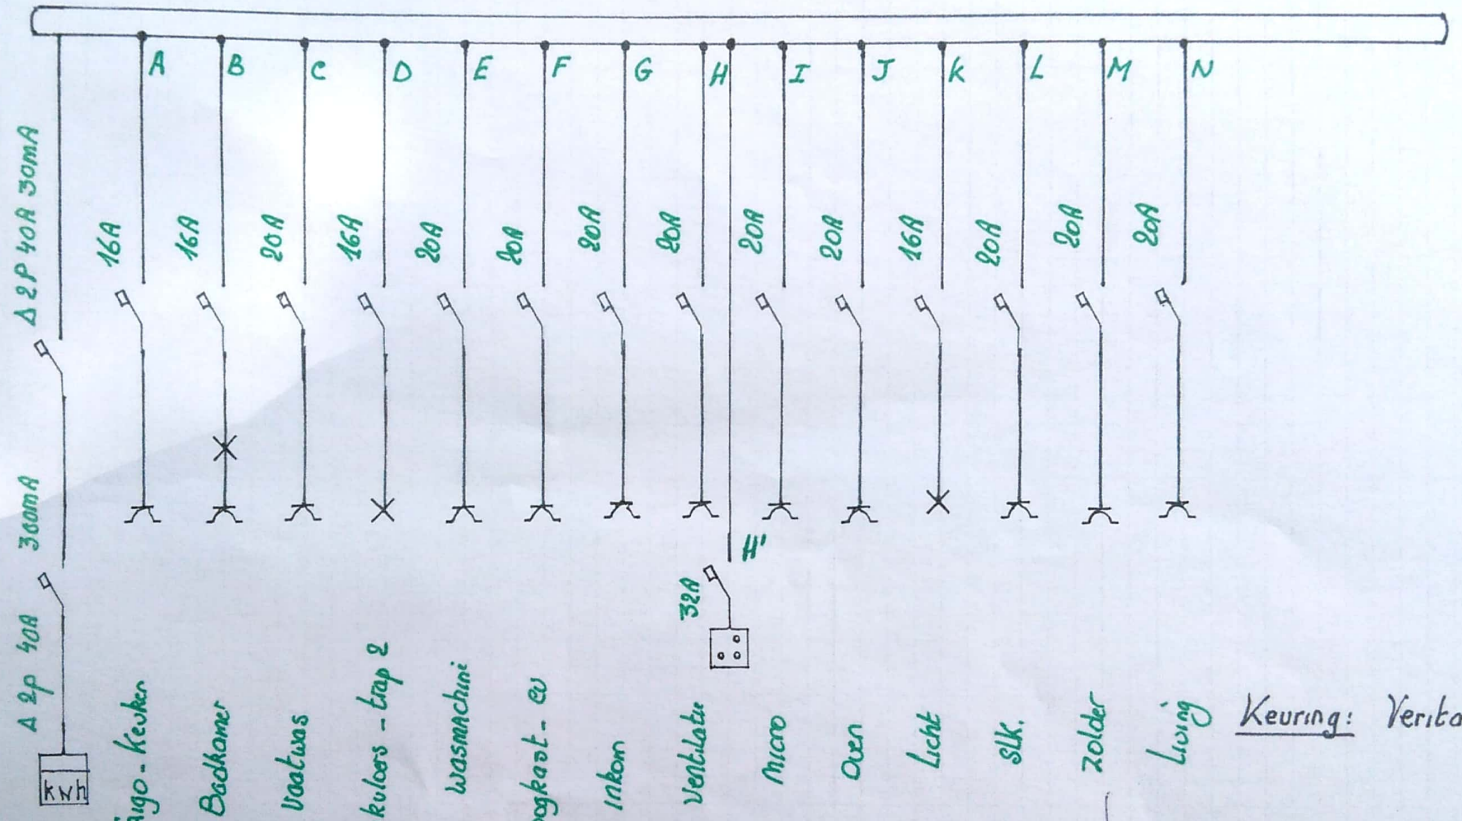 A B C D E F G H I J K L M N
Δ 2P 40A 30mA
16A 16A 20A 16A 20A 20A 20A 20A 20A 20A 16A 20A 20A 20A
300mA
H'
32A
Δ 2p 40A
kwh
Badkamer
Vaatwas
trap 2
Wasmachine
Inkom
Ventilatie
Micro
Oven
Licht
Slk.
Zolder
Living
Keuring: